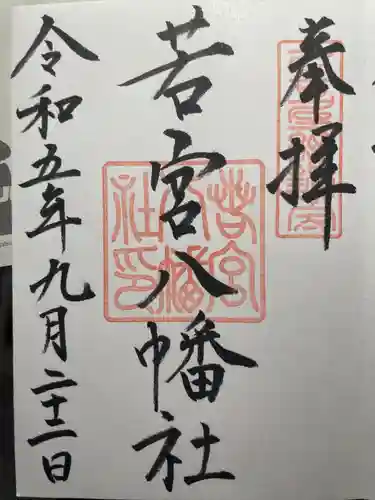 奉拝
若宮八幡社
令和五年九月二十二日
若宮八幡社印